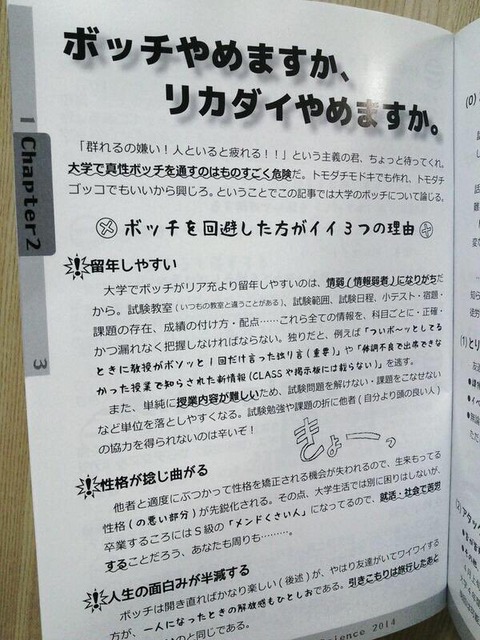 ボッチやめますか、
リカダイやめますか。
「群れるの嫌い！人といると疲れる！！」という主義の君、ちょっと待ってくれ。
大学で真性ボッチを通すのはものすごく危険だ。トモダチモドキでも作れ、トモダチ
ゴッコでもいいから興じろ。ということでこの記事では大学のボッチについて論じる。
ボッチを回避した方がイイ3つの理由
留年しやすい
大学でボッチがリア充より留年しやすいのは、情弱（情報弱者）になりがちだ
から。試験教室（いつもの教室と違うことがある）、試験範囲、試験日程、小テスト・宿題・
課題の存在、成績の付け方・配点……これら全ての情報を、科目ごとに・正確・
かつ漏れなく把握しなければならない。独りだと、例えば「ついボ〜ッとしてる
ときに教授がボソッと1回だけ言った独り言（重要）」や「体調不良で出席できな
かった授業で知らされた新情報（CLASSや掲示板には載らない）」を逃す。
また、単純に授業内容が難しいため、試験問題を解けない・課題をこなせない
など単位を落としやすくなる。試験勉強や課題の折に他者（自分より頭の良い人）
の協力を得られないのは辛いぞ！
きょーっ
性格が捻じ曲がる
他者と適度にぶつかって性格を矯正される機会が失われるので、生来もってる
性格（の悪い部分）が先鋭化される。その点、大学生活では別に困りはしないが、
卒業するころにはS級の「メンドくさい人」になってるので、就活・社会で苦労
することだろう、あなたも周りも……。
人生の面白みが半減する
ボッチは開き直ればかなり楽しい（後述）が、やはり友達がいてワイワイする
方が、一人になったときの解放感もひとしおである。引きこもりは旅行したあと
のと同じである。
Chapter2
3
Science 2014